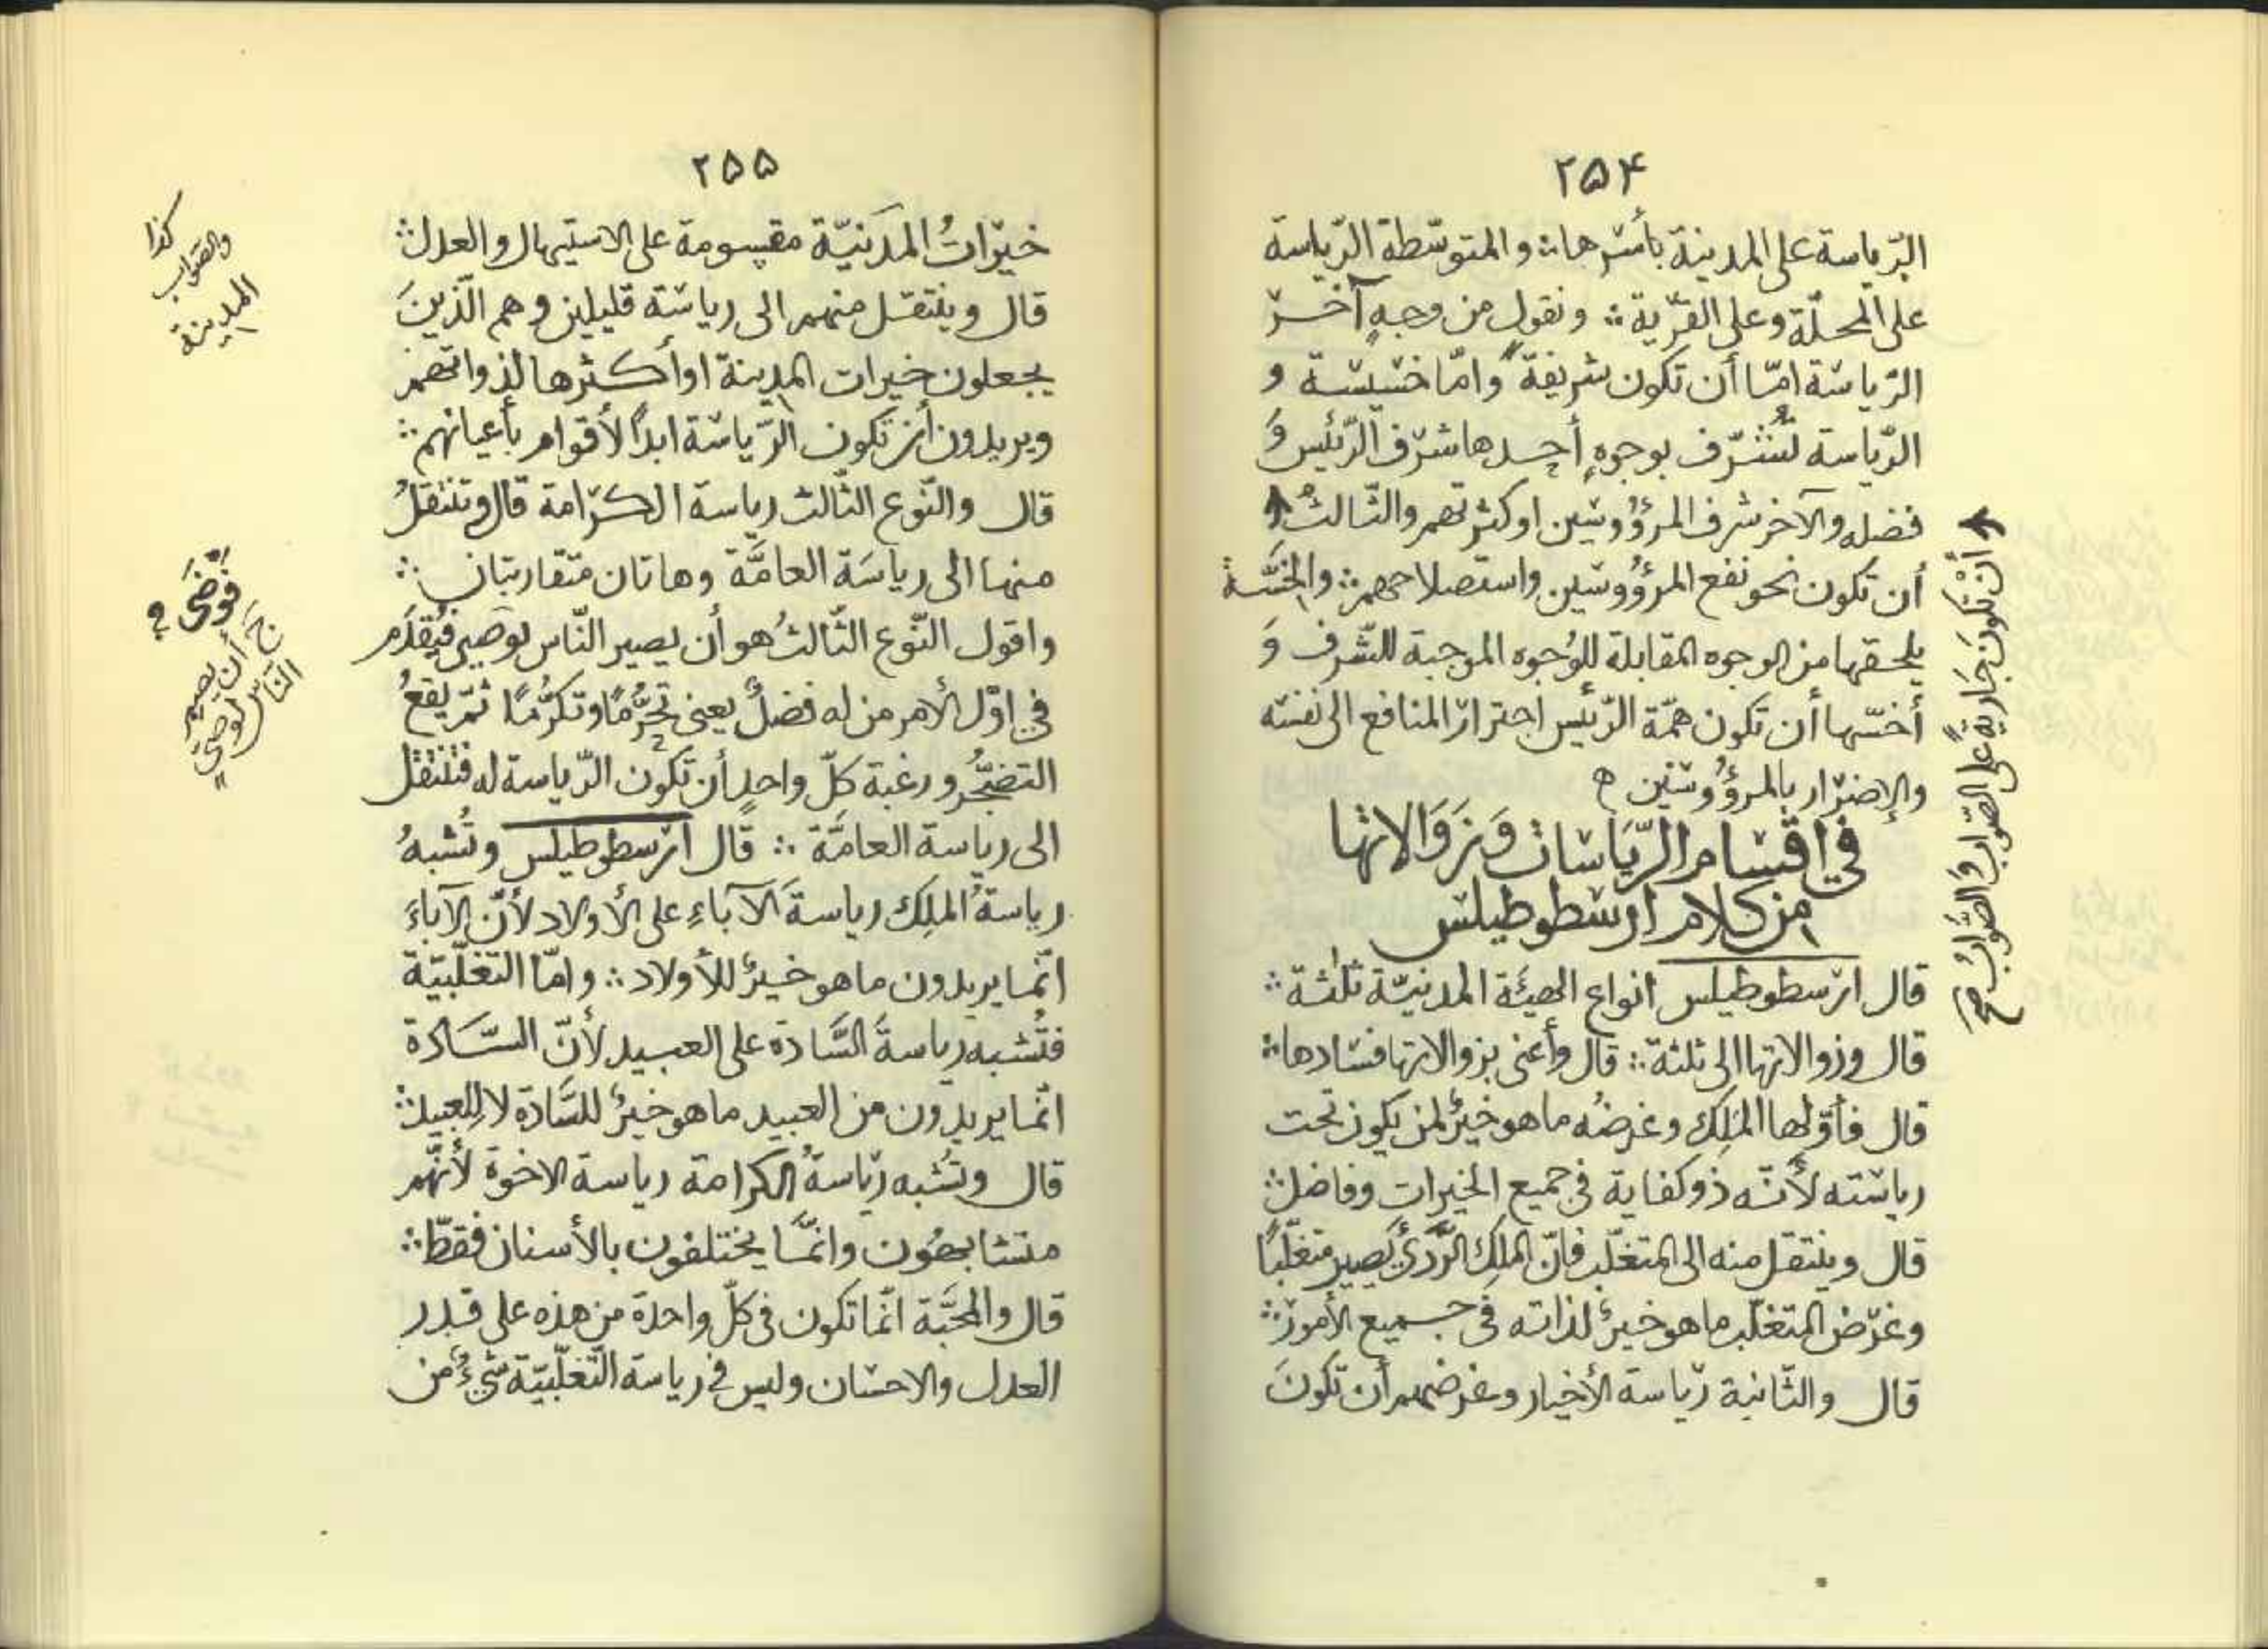 ۲۵۴
الرّياسة على المدينة بأسرها ؞ والمتوسّطة الرّياسة
على المحلّة وعلى القرية ؞ ونقول من وجهٍ آخر
الرّياسة امّا أن تكون شريفةً وامّا خسيسة و
الرّياسة تُشرّف بوجوهٍ أحدها شرف الرّئيس وَ
فضله والآخر شرف المرؤُوسين او كثرتهم والثّالثُ
أن تكون نحو نفع المرؤُوسين واستصلاحهم ؞ والخسَّة
يلحقها من الوجوه المقابلة للوُجوه الموجبة للشّرف وَ
أخسّها أن تكون همّة الرّئيس احتراز المنافع الى نفسه
والإضرار بالمرؤُوسين ه
في اقسام الرّيَاسات وَزَوَالاتها
من كلام ارسطوطيلس
قال ارسطوطيلس انواع الهيئة المدنيّة ثلٰثة ؞
قال وزوالاتها الى ثلثة ؞ قال وأعنى بزوالاتها فسادها ؞
قال فأوّلها المَلِك وغرضُه ما هو خيرٌ لمن يكون تحت
رياسته لأنّه ذو كفاية فى جميع الخيرات وفاضل ؞
قال وينتقل منه الى المتغلّب فانّ الملِك الرَّدىَّ يَصير متغلّبًا
وغرض المتغلّب ما هو خيرٌ لذاته فى جميع الأمور ؞
قال والثّانية رياسة الأخيار وغرضهم أن تكونَ
أنْ تكونَ جَاريةً على الصّواب وَالصَّوابُ صح
۲۵۵
خيرَاتُ المدَنيّة مقسومة على الاستيهال والعدل ؞
قال وينتقل منهم الى رياسة قليلين وهم الّذينَ
يجعلون خيرات المدينة او أكثرها لذواتهم
ويريدون أن تكون الرّياسة ابدًا لأقوام بأعيانهم ؞
قال والنّوع الثّالث رياسة الكرامة قال وتنتقلُ
منها الى رياسَة العامَّة وهاتان متقاربتان ؞
واقول النّوع الثّالثُ هو أن يصير النّاس لوصىٍ فيُقدَّم
في اوّل الأمر من له فضلٌ يعنى تحَرُّمًا وتكرُّمًا ثمّ يقعُ
التضجُّر ورغبة كلّ واحدٍ أن تكون الرّياسة له فتنتقل
الى رياسة العامَّة ؞ قال ارسطوطيلس وتُشبهُ
رياسةُ الملِك رياسةَ الآباءِ على الأولاد لأنّ الآباءَ
انّما يريدون ما هو خيرٌ للأولاد ؞ وامّا التغلّبيّة
فتُشبه رياسةَ السَّادة على العبيد لأنّ السّادة
انّما يريدون من العبيد ما هو خيرٌ للسَّادة لا للعبيد ؞
قال وتشبه رياسةُ الكرامة رياسة الاخوة لأنّهم
متشابهُون وانّمَا يختلفون بالأسنان فقطّ ؞
قال والمحَبَّة انّما تكون فى كلّ واحدة من هذه على قدر
العدل والاحسان وليس في رياسة التّغلّبيّة شىءٌ من
كذا
والصّواب
المدينة
فَوْضَى
خَ أن يصير
النّاسُ لوصىٍ